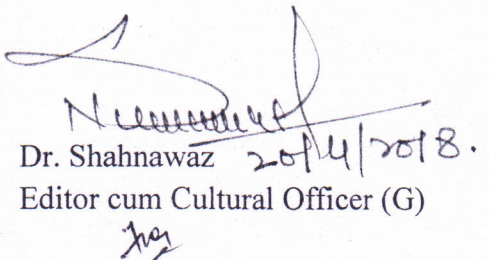 Dr. Shahnawaz 20/4/2018.
Editor cum Cultural Officer (G)